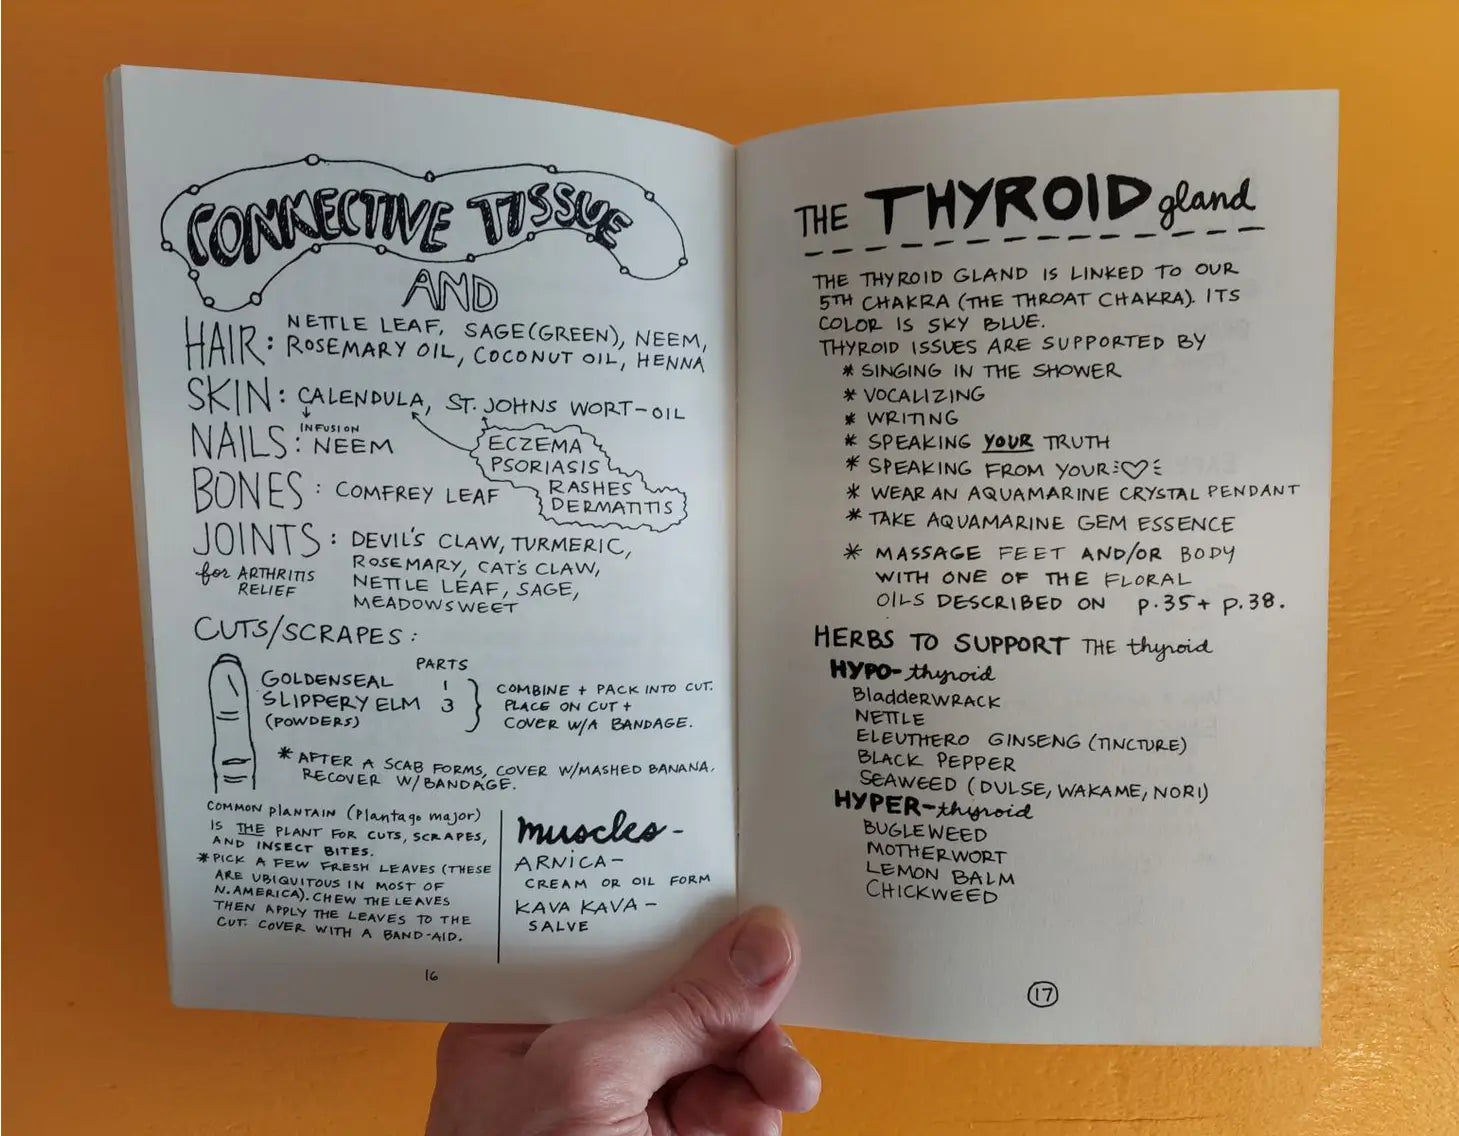 CONNECTIVE TISSUE
AND
HAIR: NETTLE LEAF, SAGE(GREEN), NEEM,
ROSEMARY OIL, COCONUT OIL, HENNA
SKIN: CALENDULA, ST. JOHNS WORT-OIL
INFUSION
NAILS: NEEM
ECZEMA
PSORIASIS
RASHES
DERMATITIS
BONES: COMFREY LEAF
JOINTS: DEVIL'S CLAW, TURMERIC,
for ARTHRITIS
RELIEF
ROSEMARY, CAT'S CLAW,
NETTLE LEAF, SAGE,
MEADOWSWEET
CUTS/SCRAPES:
PARTS
GOLDENSEAL 1
SLIPPERY ELM 3
(POWDERS)
COMBINE + PACK INTO CUT.
PLACE ON CUT +
COVER W/A BANDAGE.
* AFTER A SCAB FORMS, COVER W/MASHED BANANA,
RECOVER W/BANDAGE.
COMMON PLANTAIN (Plantago major)
IS THE PLANT FOR CUTS, SCRAPES,
AND INSECT BITES.
* PICK A FEW FRESH LEAVES (THESE
ARE UBIQUITOUS IN MOST OF
N.AMERICA). CHEW THE LEAVES
THEN APPLY THE LEAVES TO THE
CUT. COVER WITH A BAND-AID.
muscles-
ARNICA-
CREAM OR OIL FORM
KAVA KAVA-
SALVE
16
THE THYROID gland
THE THYROID GLAND IS LINKED TO OUR
5TH CHAKRA (THE THROAT CHAKRA). ITS
COLOR IS SKY BLUE.
THYROID ISSUES ARE SUPPORTED BY
* SINGING IN THE SHOWER
* VOCALIZING
* WRITING
* SPEAKING YOUR TRUTH
* SPEAKING FROM YOUR ♡
* WEAR AN AQUAMARINE CRYSTAL PENDANT
* TAKE AQUAMARINE GEM ESSENCE
* MASSAGE FEET AND/OR BODY
WITH ONE OF THE FLORAL
OILS DESCRIBED ON p.35+ p.38.
HERBS TO SUPPORT THE thyroid
HYPO-thyroid
BladderWRACK
NETTLE
ELEUTHERO GINSENG (TINCTURE)
BLACK PEPPER
SEAWEED (DULSE, WAKAME, NORI)
HYPER-thyroid
BUGLEWEED
MOTHERWORT
LEMON BALM
CHICKWEED
17